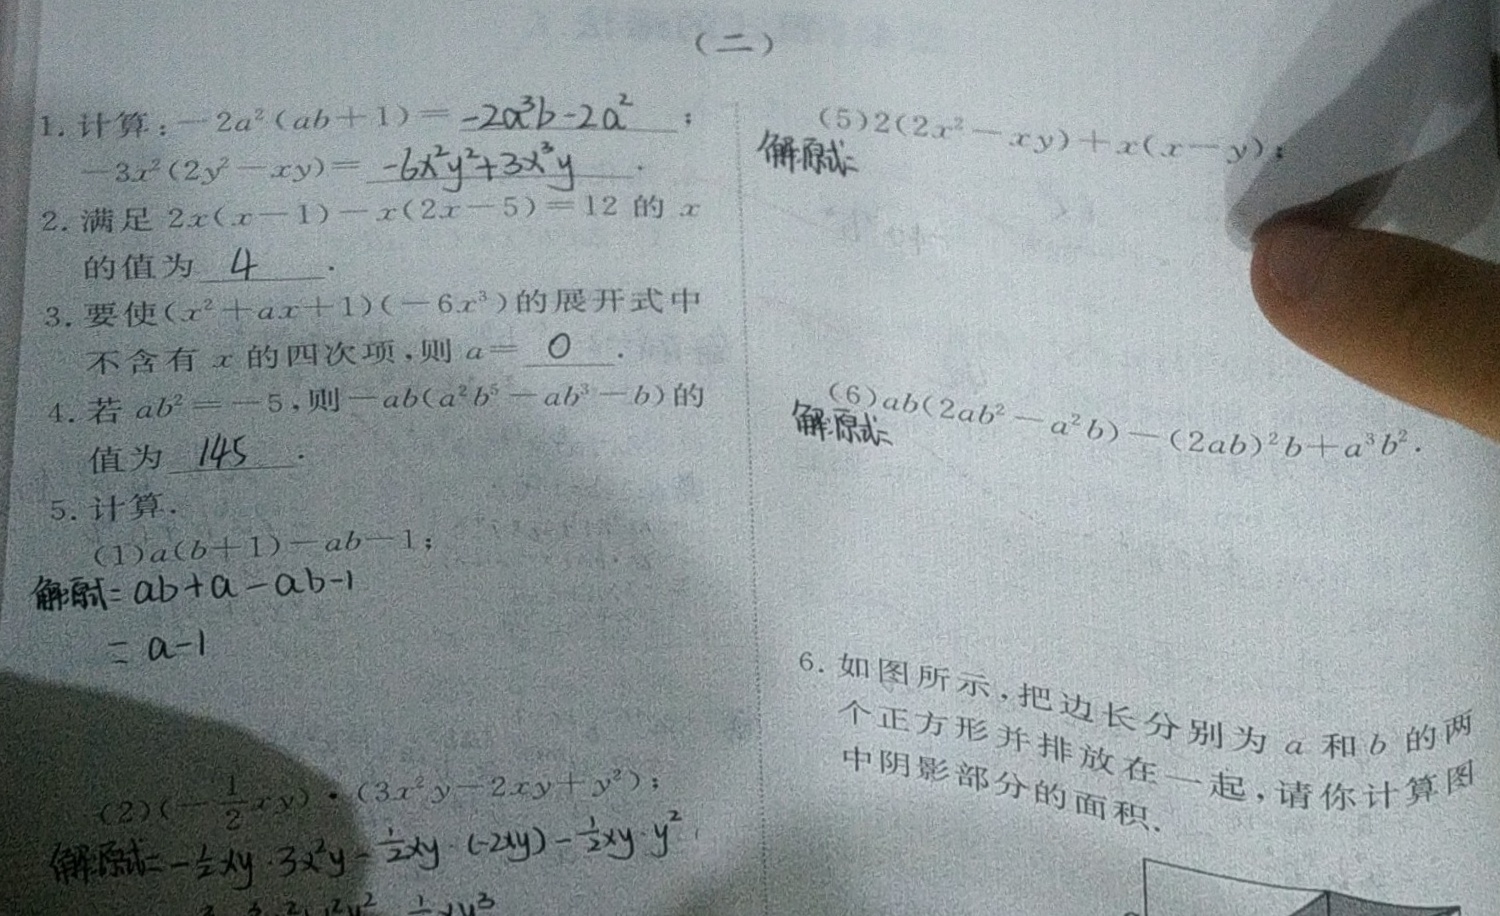 （二）
1. 计算：－2a²（ab＋1）＝ -2a³b-2a² ；
－3x²（2y²－xy）＝ -6x²y²+3x³y .
2. 满足 2x（x－1）－x（2x－5）＝12 的 x
的值为 4 .
3. 要使（x²＋ax＋1）（－6x³）的展开式中
不含有 x 的四次项，则 a＝ 0 .
4. 若 ab²＝－5，则－ab（a²b⁵－ab³－b）的
值为 145 .
5. 计算.
（1）a（b＋1）－ab－1；
解:原式= ab+a-ab-1
= a-1
（2）（－1/2xy）·（3x²y－2xy＋y²）；
解:原式= -1/2xy·3x²y-1/2xy·(-2xy)-1/2xy·y²
（5）2（2x²－xy）＋x（x－y）；
解:原式=
（6）ab（2ab²－a²b）－（2ab）²b＋a³b².
解:原式=
6. 如图所示，把边长分别为 a 和 b 的两
个正方形并排放在一起，请你计算图
中阴影部分的面积.